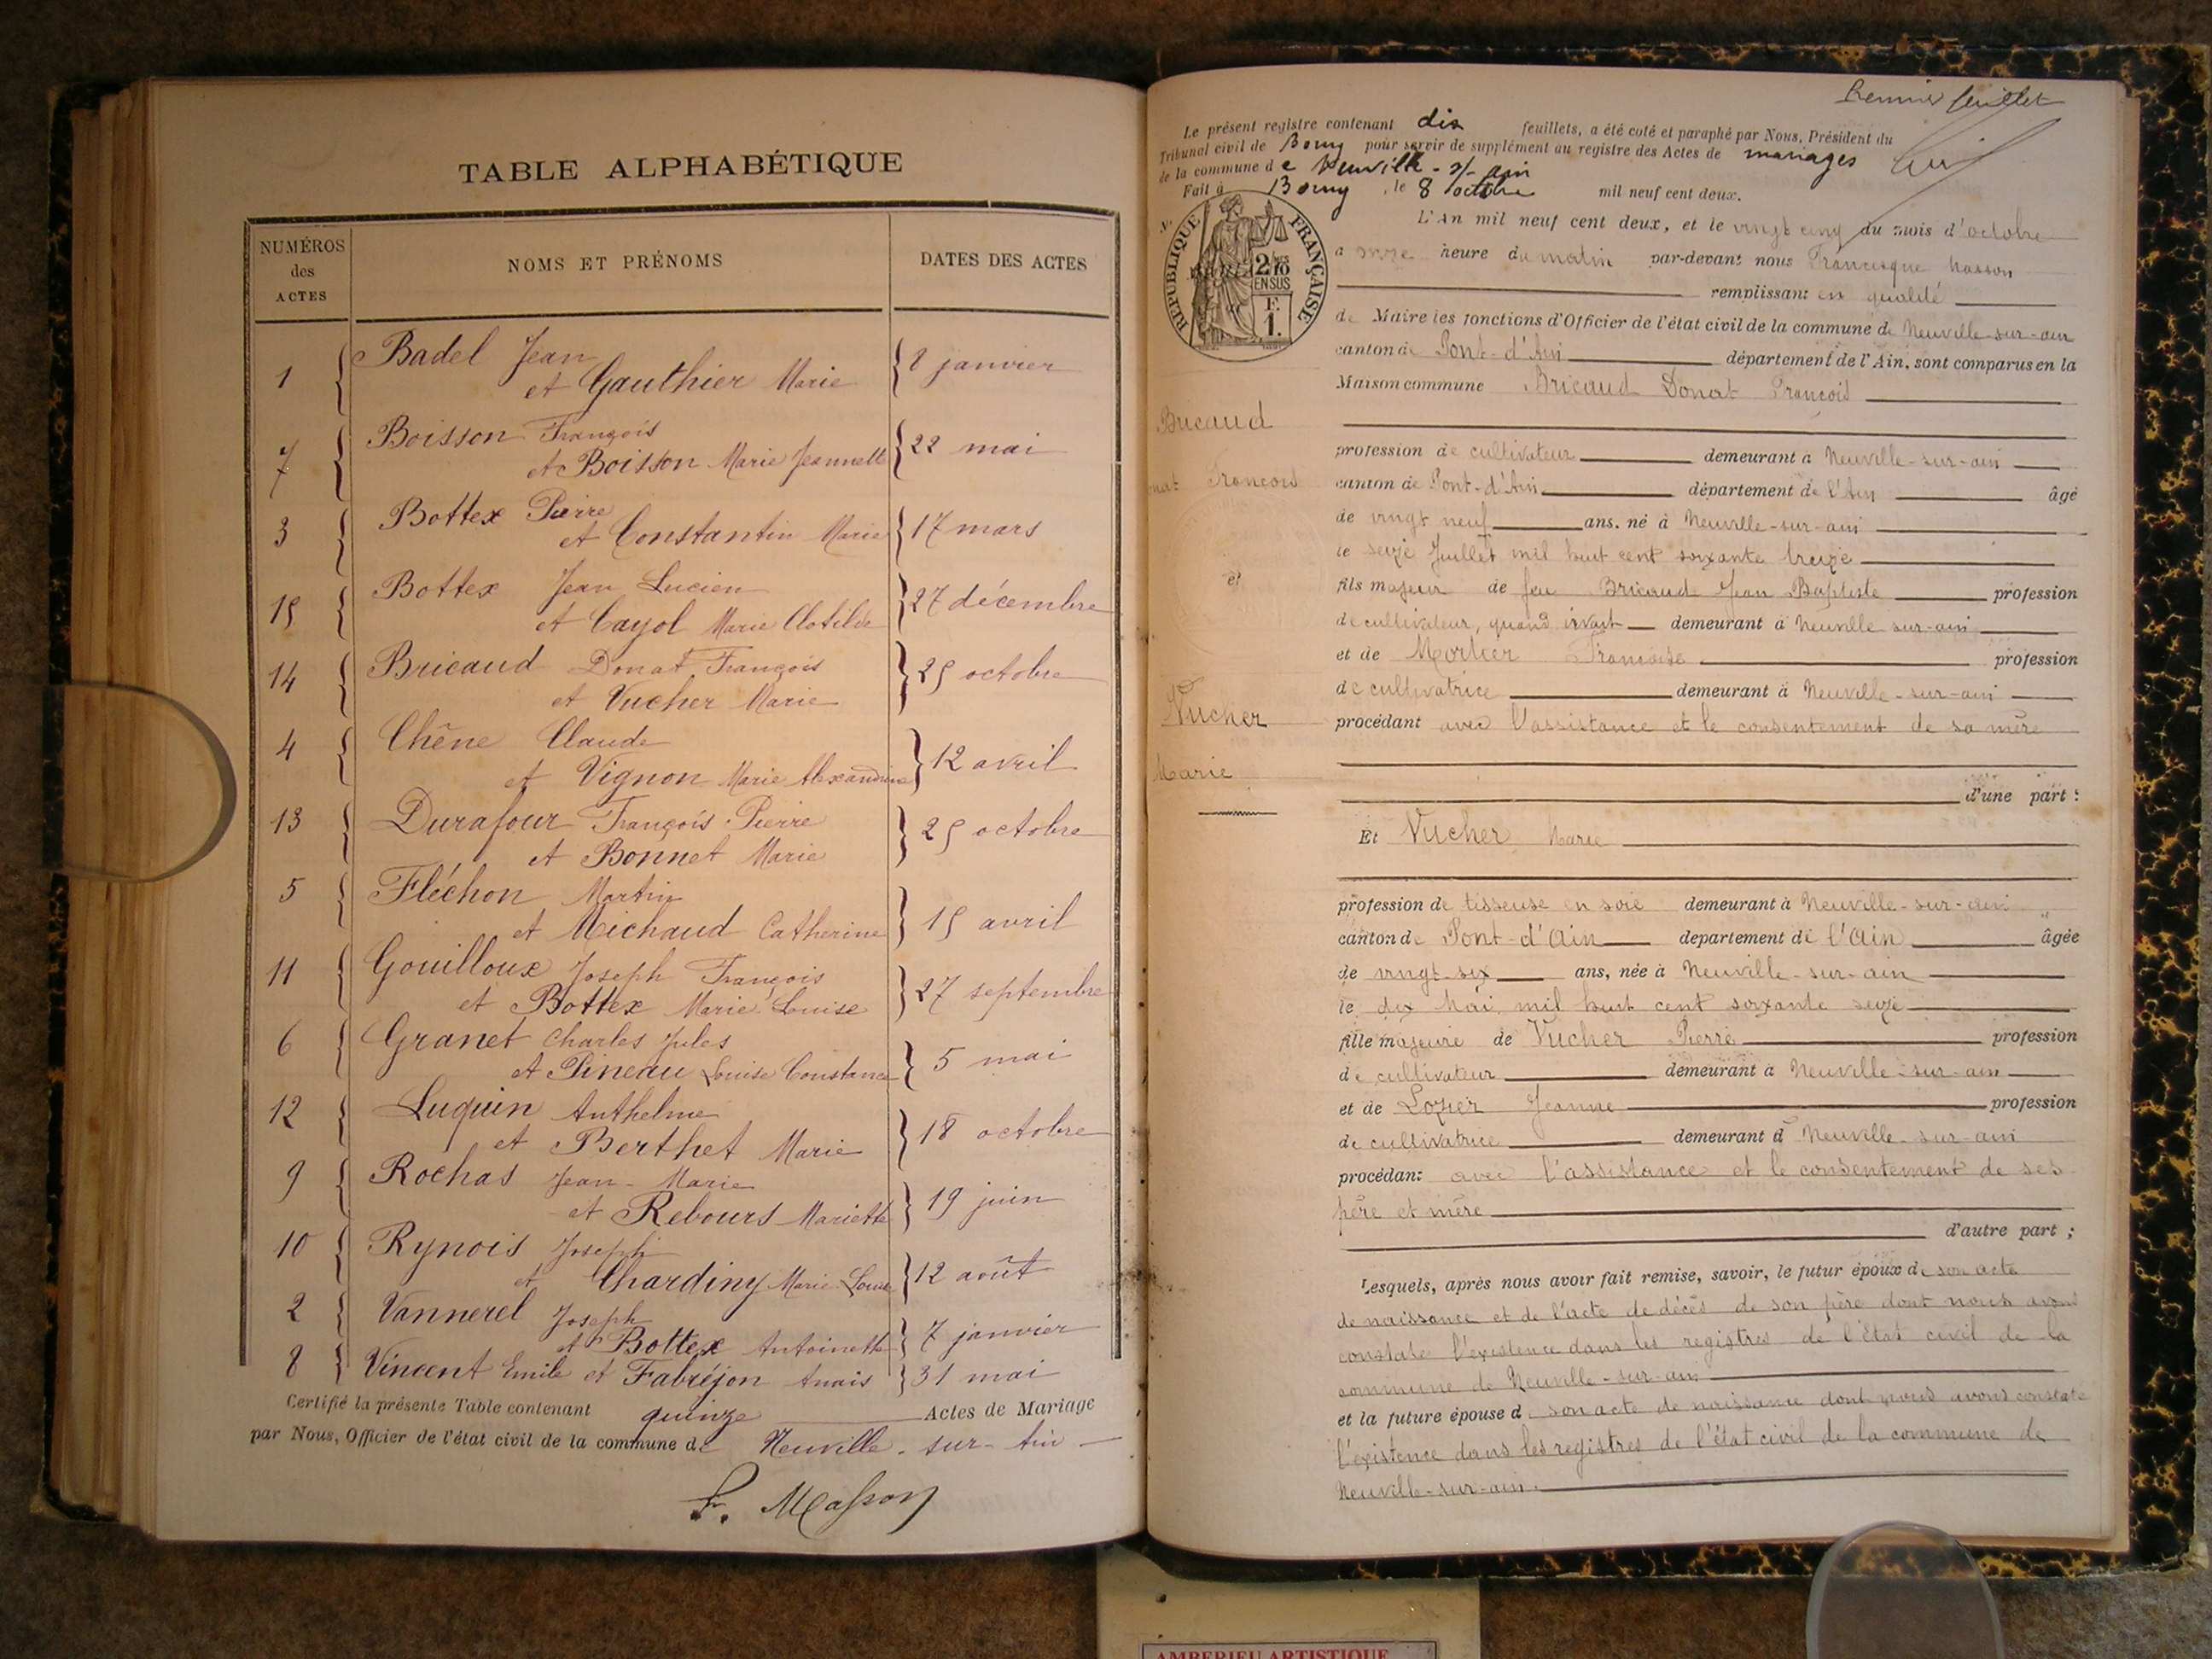 TABLE ALPHABÉTIQUE
NUMÉROS des ACTES
NOMS ET PRÉNOMS
DATES DES ACTES
1 Badel Jean
et Gauthier Marie
8 janvier
7 Boisson François
et Boisson Marie Jeannette
22 mai
3 Bottex Pierre
et Constantin Marie
17 mars
15 Bottex Jean Lucien
et Cayol Marie Clotilde
27 décembre
14 Bricaud Donat François
et Vucher Marie
25 octobre
4 Chêne Claude
et Vignon Marie Alexandrine
12 avril
13 Durafour François Pierre
et Bonnet Marie
25 octobre
5 Fléchon Martin
et Michaud Catherine
15 avril
11 Gouilloux Joseph François
et Bottex Marie Louise
27 septembre
6 Granet Charles Jules
et Pineau Louise Constance
5 mai
12 Luquin Anthelme
et Berthet Marie
18 octobre
9 Rochas Jean-Marie
et Rebours Mariette
19 juin
10 Rynois Joseph
et Chardiny Marie Louise
12 août
2 Vannerel Joseph
et Bottex Antoinette
7 janvier
8 Vincent Emile et Fabréjon Anais
31 mai
Certifié la présente Table contenant quinze Actes de Mariage
par Nous, Officier de l'état civil de la commune de Neuville-sur-Ain
F. Masson
Premier feuillet
Le présent registre contenant dix feuillets, a été coté et paraphé par Nous, Président du
Tribunal civil de Bourg pour servir de supplément au registre des Actes de mariages
de la commune de Neuville-s/-ain
Fait à Bourg, le 8 octobre mil neuf cent deux.
RÉPUBLIQUE FRANÇAISE
2/10 ENSUS
F.
1.
L'An mil neuf cent deux, et le vingt cinq du mois d'octobre
a onze heure du matin par-devant nous Francisque Masson
remplissant en qualité
de Maire les fonctions d'Officier de l'état civil de la commune de Neuville-sur-ain
canton de Pont-d'Ain département de l'Ain, sont comparus en la
Maison commune Bricaud Donat François
Bricaud
profession de cultivateur demeurant à Neuville-sur-ain
nat François
canton de Pont-d'Ain département de l'Ain âgé
de vingt neuf ans, né à Neuville-sur-ain
le seize Juillet mil huit cent soixante treize
et
fils majeur de feu Bricaud Jean Baptiste profession
de cultivateur, quand vivait demeurant à Neuville sur-ain
et de Mortier Françoise profession
de cultivatrice demeurant à Neuville-sur-ain
Vucher
procédant avec l'assistance et le consentement de sa mère
Marie
d'une part :
Et Vucher Marie
profession de tisseuse en soie demeurant à Neuville-sur-ain
canton de Pont-d'Ain departement de l'Ain âgée
de vingt-six ans, née à Neuville-sur-ain
le dix Mai mil huit cent soixante seize
fille majeure de Vucher Pierre profession
de cultivateur demeurant à Neuville-sur-ain
et de Lozier Jeanne profession
de cultivatrice demeurant à Neuville-sur-ain
procédant avec l'assistance et le consentement de ses
père et mère
d'autre part ;
Lesquels, après nous avoir fait remise, savoir, le futur époux de son acte
de naissance et de l'acte de décès de son père dont nous avons
constaté l'existence dans les registres de l'Etat civil de la
commune de Neuville-sur-ain
et la future épouse d son acte de naissance dont nous avons constaté
l'existence dans les registres de l'état civil de la commune de
Neuville-sur-ain.
AMBERIEU ARTISTIQUE